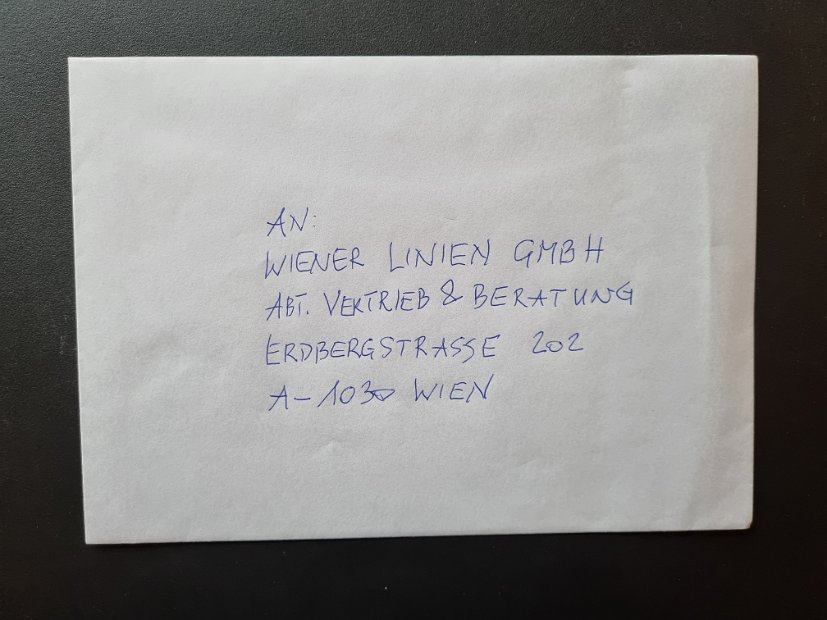 AN:
WIENER LINIEN GMBH
ABT. VERTRIEB & BERATUNG
ERDBERGSTRASSE 202
A-1030 WIEN